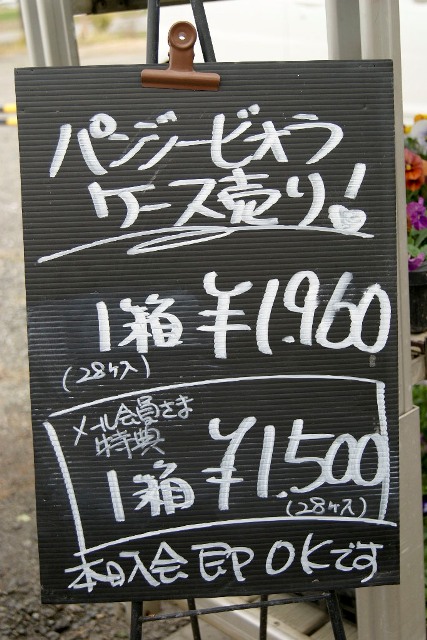 パンジービオラ
ケース売り!
1箱 ¥1.960
(28ヶ入)
メール会員さま
特典
1箱 ¥1.500
(28ヶ入)
本日入会 即OKです